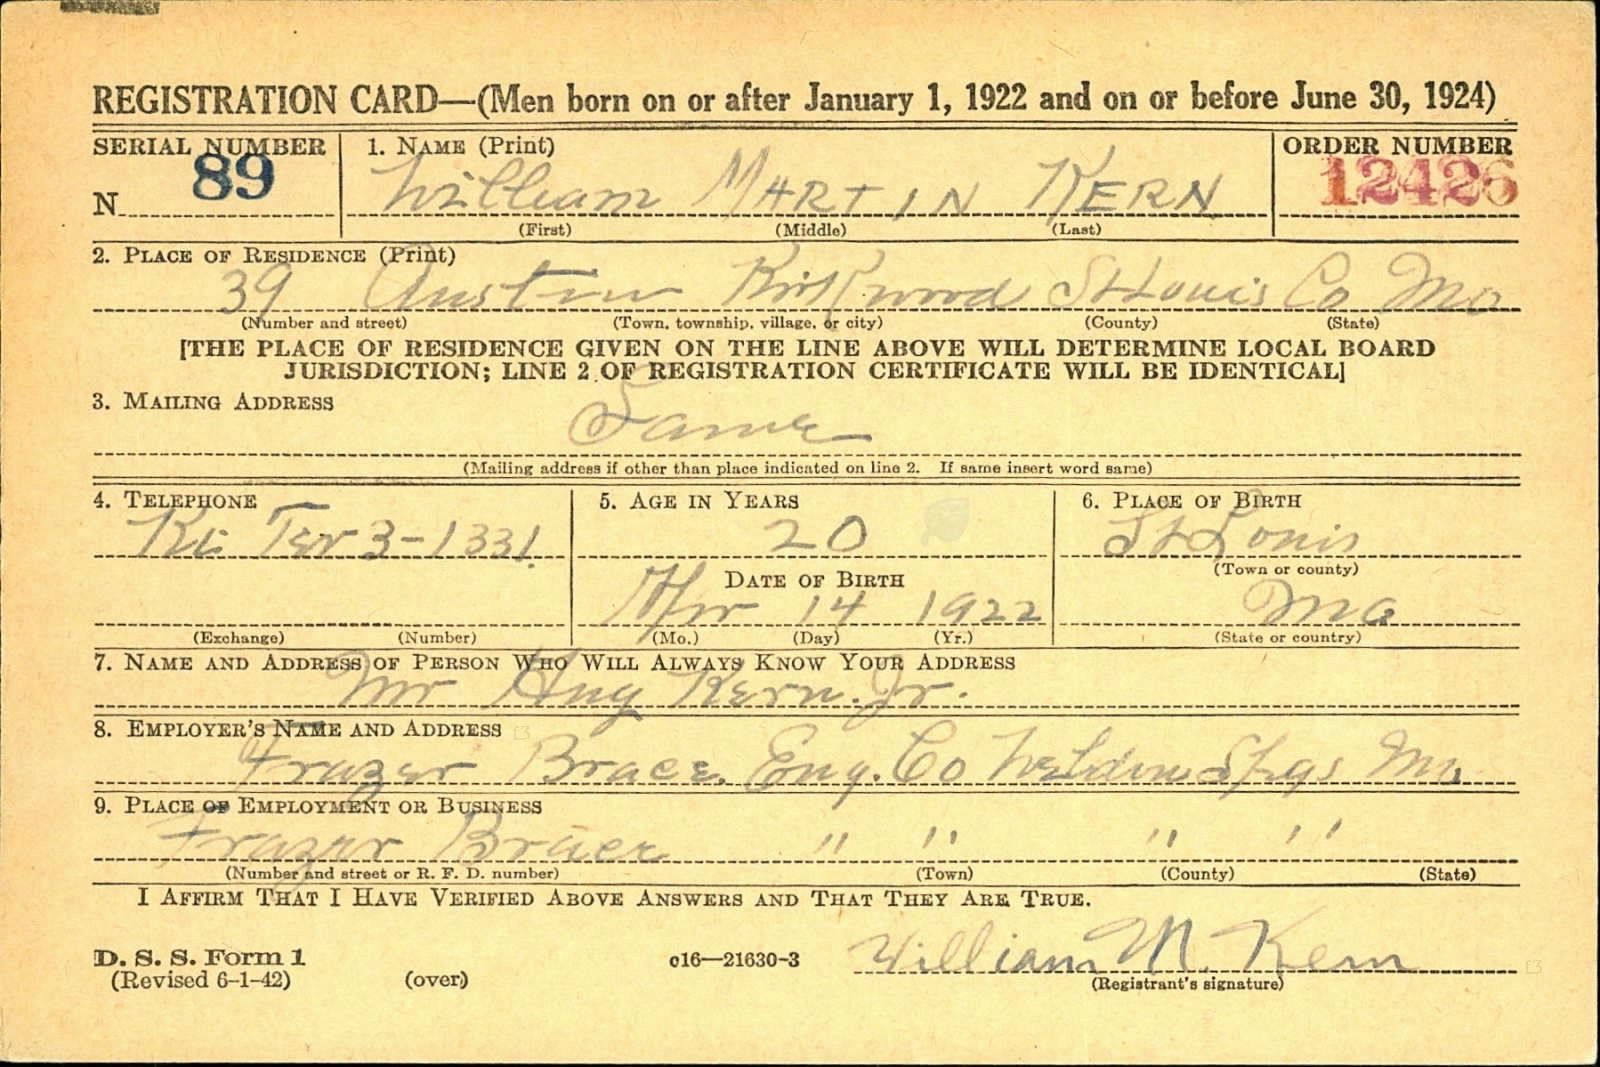 REGISTRATION CARD—(Men born on or after January 1, 1922 and on or before June 30, 1924)
SERIAL NUMBER 1. NAME (Print) ORDER NUMBER
N 89 William MARTIN KERN 12426
(First) (Middle) (Last)
2. PLACE OF RESIDENCE (Print)
39 Austin Kirkwood St Louis Co Mo
(Number and street) (Town, township, village, or city) (County) (State)
[THE PLACE OF RESIDENCE GIVEN ON THE LINE ABOVE WILL DETERMINE LOCAL BOARD
JURISDICTION; LINE 2 OF REGISTRATION CERTIFICATE WILL BE IDENTICAL]
3. MAILING ADDRESS
Same
(Mailing address if other than place indicated on line 2. If same insert word same)
4. TELEPHONE 5. AGE IN YEARS 6. PLACE OF BIRTH
Ki Ter 3-1331 20 St Louis
(Town or county)
DATE OF BIRTH
14 1922 Mo
(Exchange) (Number) (Mo.) (Day) (Yr.) (State or country)
7. NAME AND ADDRESS OF PERSON WHO WILL ALWAYS KNOW YOUR ADDRESS
Mr Hny Kern. Jr.
8. EMPLOYER'S NAME AND ADDRESS
Frazer Brace. Eng. Co Weldon Spgs Mo.
9. PLACE OF EMPLOYMENT OR BUSINESS
Frazer Brace " " " "
(Number and street or R. F. D. number) (Town) (County) (State)
I AFFIRM THAT I HAVE VERIFIED ABOVE ANSWERS AND THAT THEY ARE TRUE.
D. S. S. Form 1
(Revised 6-1-42) (over) c16—21630-3 William M. Kern
(Registrant's signature)